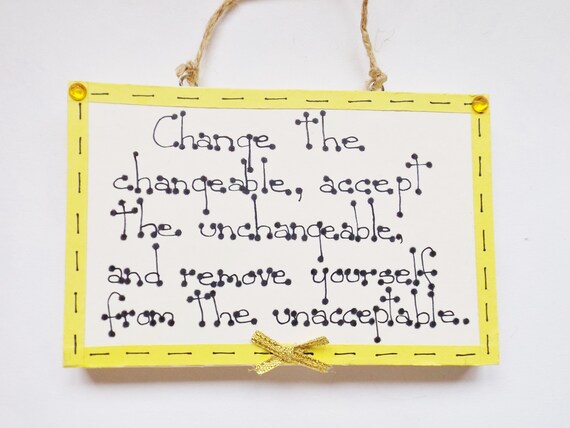 Change the
changeable, accept
the unchangeable,
and remove yourself
from the unacceptable..